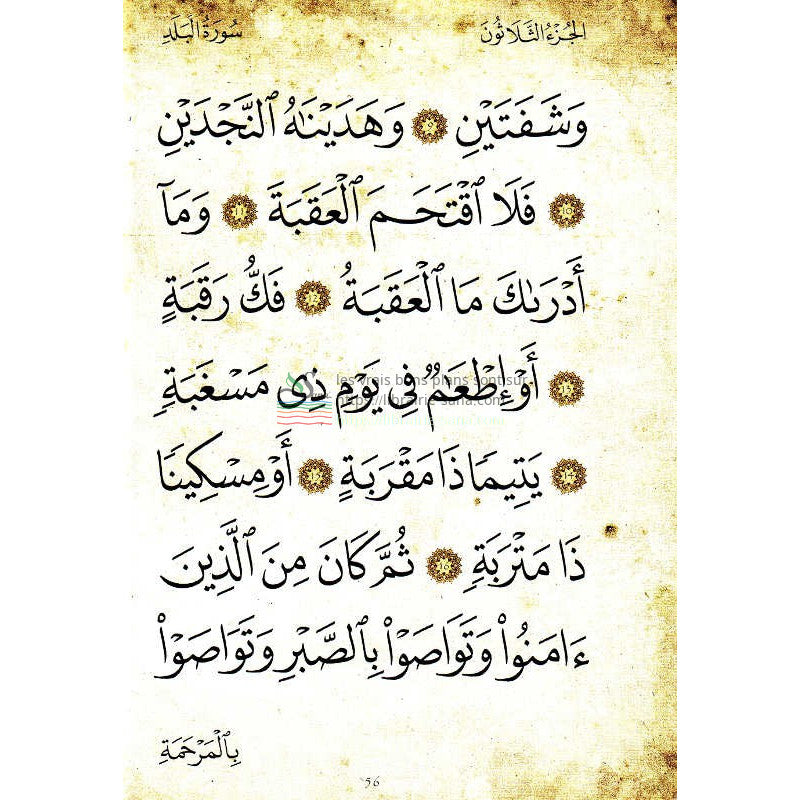 الجُزْءُ الثَّلَاثُونَ سُورَةُ البَلَدِ
وَشَفَتَيْنِ 9 وَهَدَيْنَٰهُ ٱلنَّجْدَيْنِ
10 فَلَا ٱقْتَحَمَ ٱلْعَقَبَةَ 11 وَمَآ
أَدْرَىٰكَ مَا ٱلْعَقَبَةُ 12 فَكُّ رَقَبَةٍ
13 أَوْ إِطْعَٰمٌ فِى يَوْمٍ ذِى مَسْغَبَةٍ
les vrais bons plans sont sur
https://librairie-sana.com
14 يَتِيمًا ذَا مَقْرَبَةٍ 15 أَوْ مِسْكِينًا
ذَا مَتْرَبَةٍ 16 ثُمَّ كَانَ مِنَ ٱلَّذِينَ
ءَامَنُوا۟ وَتَوَاصَوْا۟ بِٱلصَّبْرِ وَتَوَاصَوْا۟
بِٱلْمَرْحَمَةِ
56